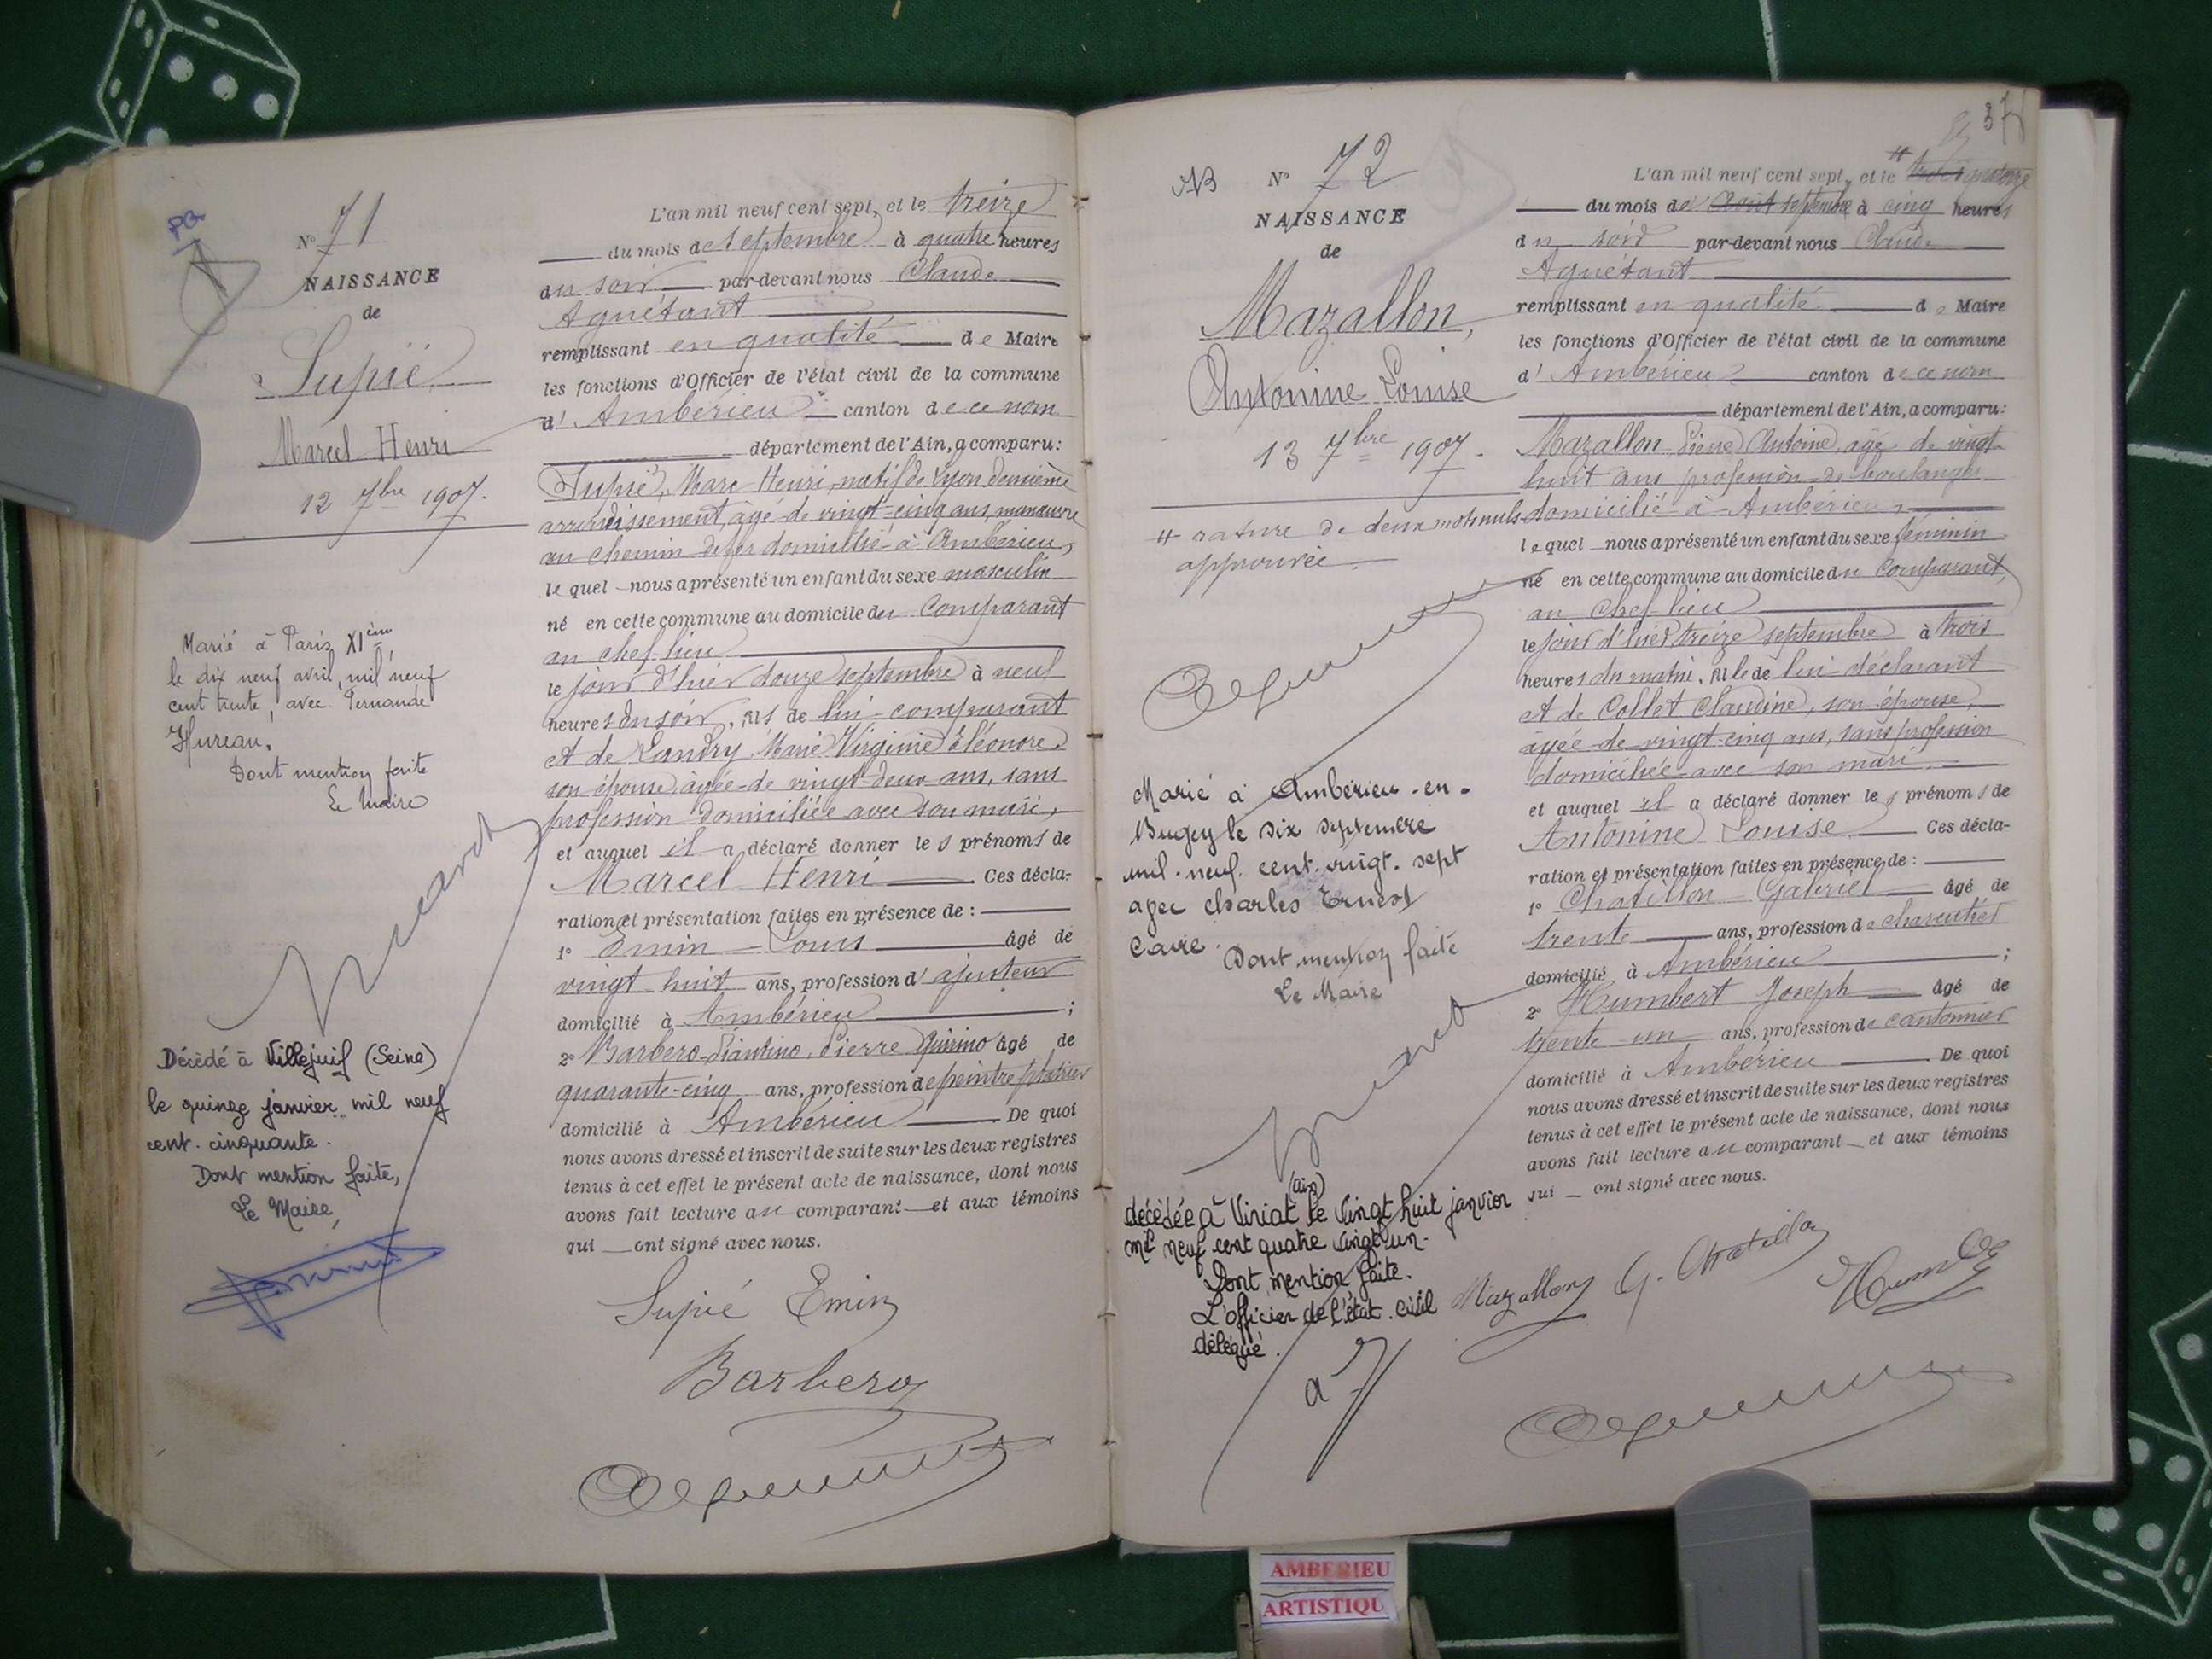 PG
N° 71
NAISSANCE
de
Supié
Marcel Henri
12 7bre 1907.
Marié à Paris XIème,
le dix neuf avril, mil neuf
cent trente, avec Fernande
Hureau.
Dont mention faite
Le Maire
Décédé à Villejuif (Seine)
le quinze janvier mil neuf
cent. cinquante.
Dont mention faite,
Le Maire,
L'an mil neuf cent sept, et le treize
du mois de septembre à quatre heures
du soir par-devant nous Claude
Aguétant
remplissant en qualité de Maire
les fonctions d'Officier de l'état civil de la commune
d' Ambérieu canton de ce nom
département de l'Ain, a comparu:
Supié, Marc Henri, natif de Lyon deuxième
arrondissement, âgé de vingt-cinq ans, manœuvre
au chemin de fer domicilié à Ambérieu,
lequel nous a présenté un enfant du sexe masculin
né en cette commune au domicile du Comparant
au chef-lieu
le jour d'hier douze septembre à neuf
heures du soir, fils de lui-comparant
et de Landry Marie Virginie Eléonore
son épouse, âgée de vingt-deux ans, sans
profession domiciliée avec son mari,
et auquel il a déclaré donner les prénoms de
Marcel Henri Ces décla-
ration et présentation faites en présence de :
1° Emin Louis âgé de
vingt huit ans, profession d' ajusteur
domicilié à Ambérieu ;
2° Barbero-Piantino, Pierre Quirino âgé de
quarante-cinq ans, profession de peintre plâtrier
domicilié à Ambérieu De quoi
nous avons dressé et inscrit de suite sur les deux registres
tenus à cet effet le présent acte de naissance, dont nous
avons fait lecture au comparant et aux témoins
qui ont signé avec nous.
Supié Emin
Barbero
NB N° 72
NAISSANCE
de
Mazallon,
Antonine Louise
13 7bre 1907.
# rature de deux mots nuls
approuvée
Marié à Ambérieu-en-
Bugey le six septembre
mil. neuf. cent. vingt. sept
avec Charles Ernest
Caire.
Dont mention faite
Le Maire
(Ain)
décédée à Viriat le vingt huit janvier
mil neuf cent quatre vingt un.
Dont mention faite.
L'officier de l'état. civil
délégué.
37
L'an mil neuf cent sept, et le # trois quatorze
du mois de Août septembre à cinq heures
du soir par-devant nous Claude
Aguétant
remplissant en qualité de Maire
les fonctions d'Officier de l'état civil de la commune
d' Ambérieu canton de ce nom
département de l'Ain, a comparu:
Mazallon Pierre Antoine, âgé de vingt-
huit ans profession de boulanger
domicilié à Ambérieu,
lequel nous a présenté un enfant du sexe féminin
né en cette commune au domicile du Comparant,
au chef-lieu
le jour d'hier treize septembre à trois
heures du matin, fille de lui-déclarant
et de Collet Claudine, son épouse,
âgée de vingt-cinq ans, sans profession
domiciliée avec son mari.
et auquel il a déclaré donner les prénoms de
Antonine Louise Ces décla-
ration et présentation faites en présence de :
1° Chatillon Gabriel âgé de
trente ans, profession de charcutier
domicilié à Ambérieu ;
2° Humbert Joseph âgé de
trente-un ans, profession de cantonnier
domicilié à Ambérieu De quoi
nous avons dressé et inscrit de suite sur les deux registres
tenus à cet effet le présent acte de naissance, dont nous
avons fait lecture au comparant et aux témoins
qui ont signé avec nous.
Mazallon G. Chatillon
AMBERIEU
ARTISTIQU